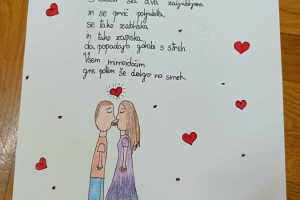 sta dva zaljubljena
in se prvič poljubita,
se tako zabliska
in tako zapiska,
da popadajo golobi s streh.
Vsem mimoidočim
gre potem še dolgo na smeh.